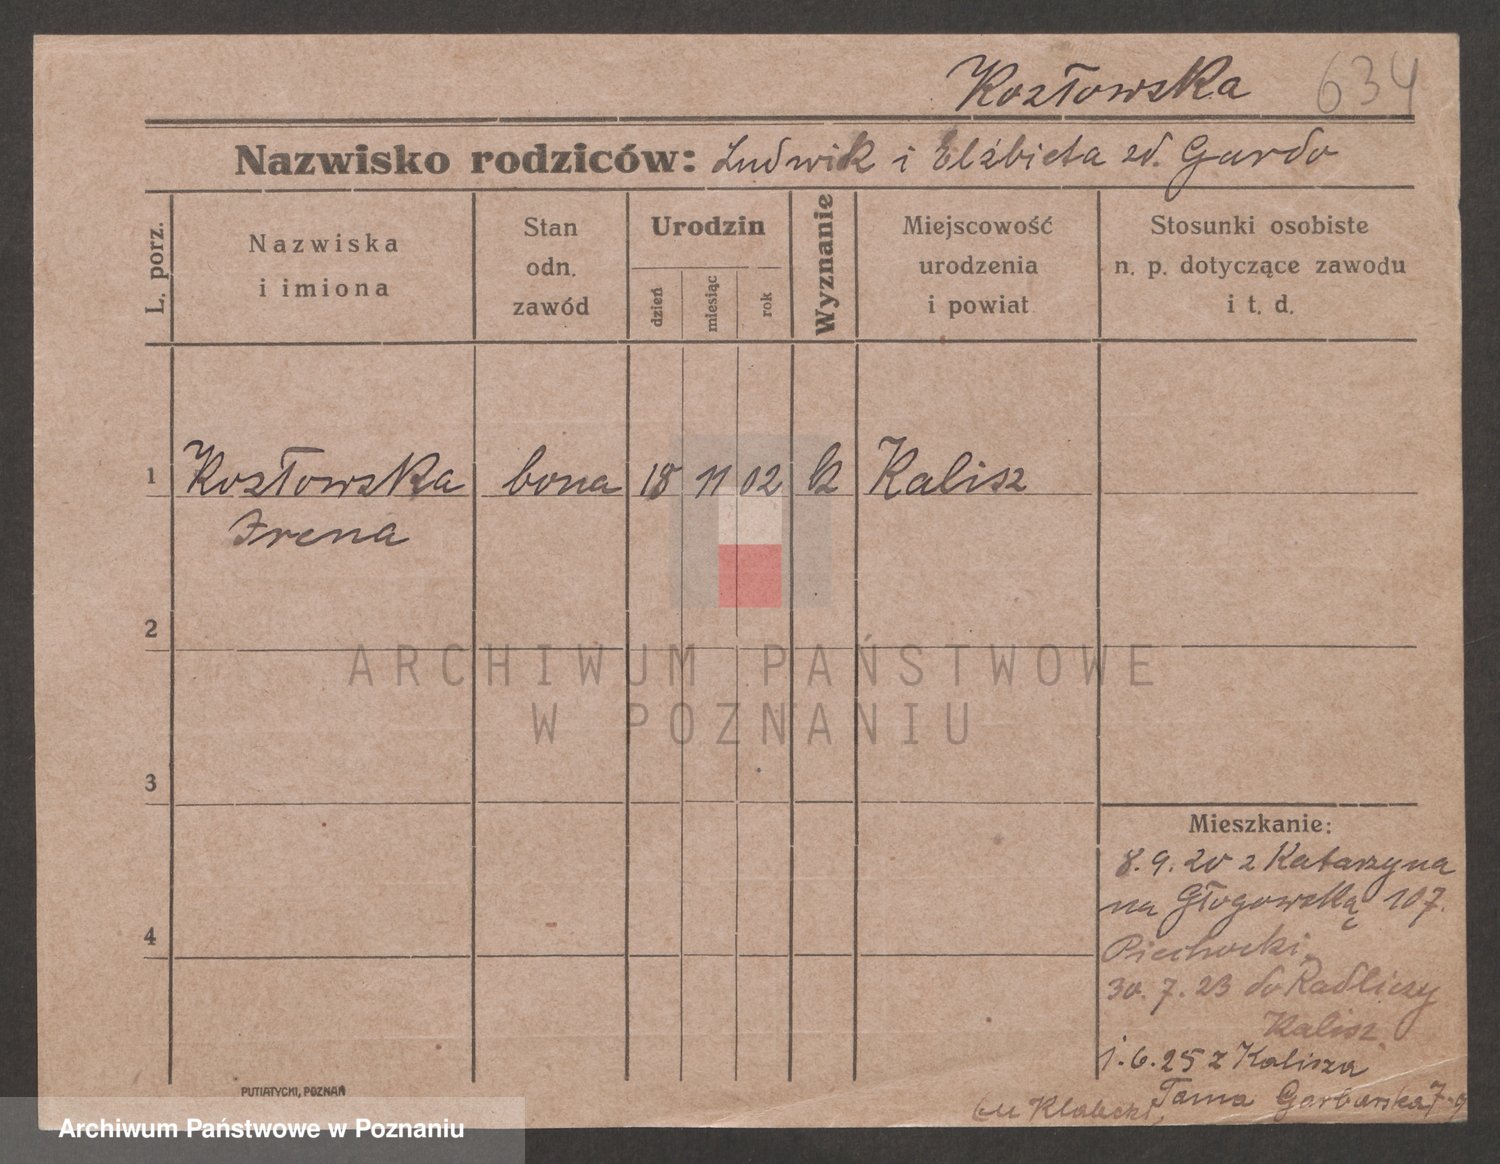 Kozłowska 634
Nazwisko rodziców: Ludwik i Elżbieta zd. Gardo
L. porz.
Nazwiska i imiona
Stan odn. zawód
Urodzin
dzień
miesiąc
rok
Wyznanie
Miejscowość urodzenia i powiat
Stosunki osobiste n. p. dotyczące zawodu i t. d.
1 Kozłowska bona 18 11 02 k Kalisz
Irena
2
ARCHIWUM PAŃSTWOWE
W POZNANIU
3
Mieszkanie:
8.9.20 z Katarzyna
na Głogowską 107.
4
Piechocki,
30.7.23 do Radliczy
Kalisz
1.6.25 z Kalisza
Tama Garbarska 7.
PUTIATYCKI, POZNAŃ
Archiwum Państwowe w Poznaniu